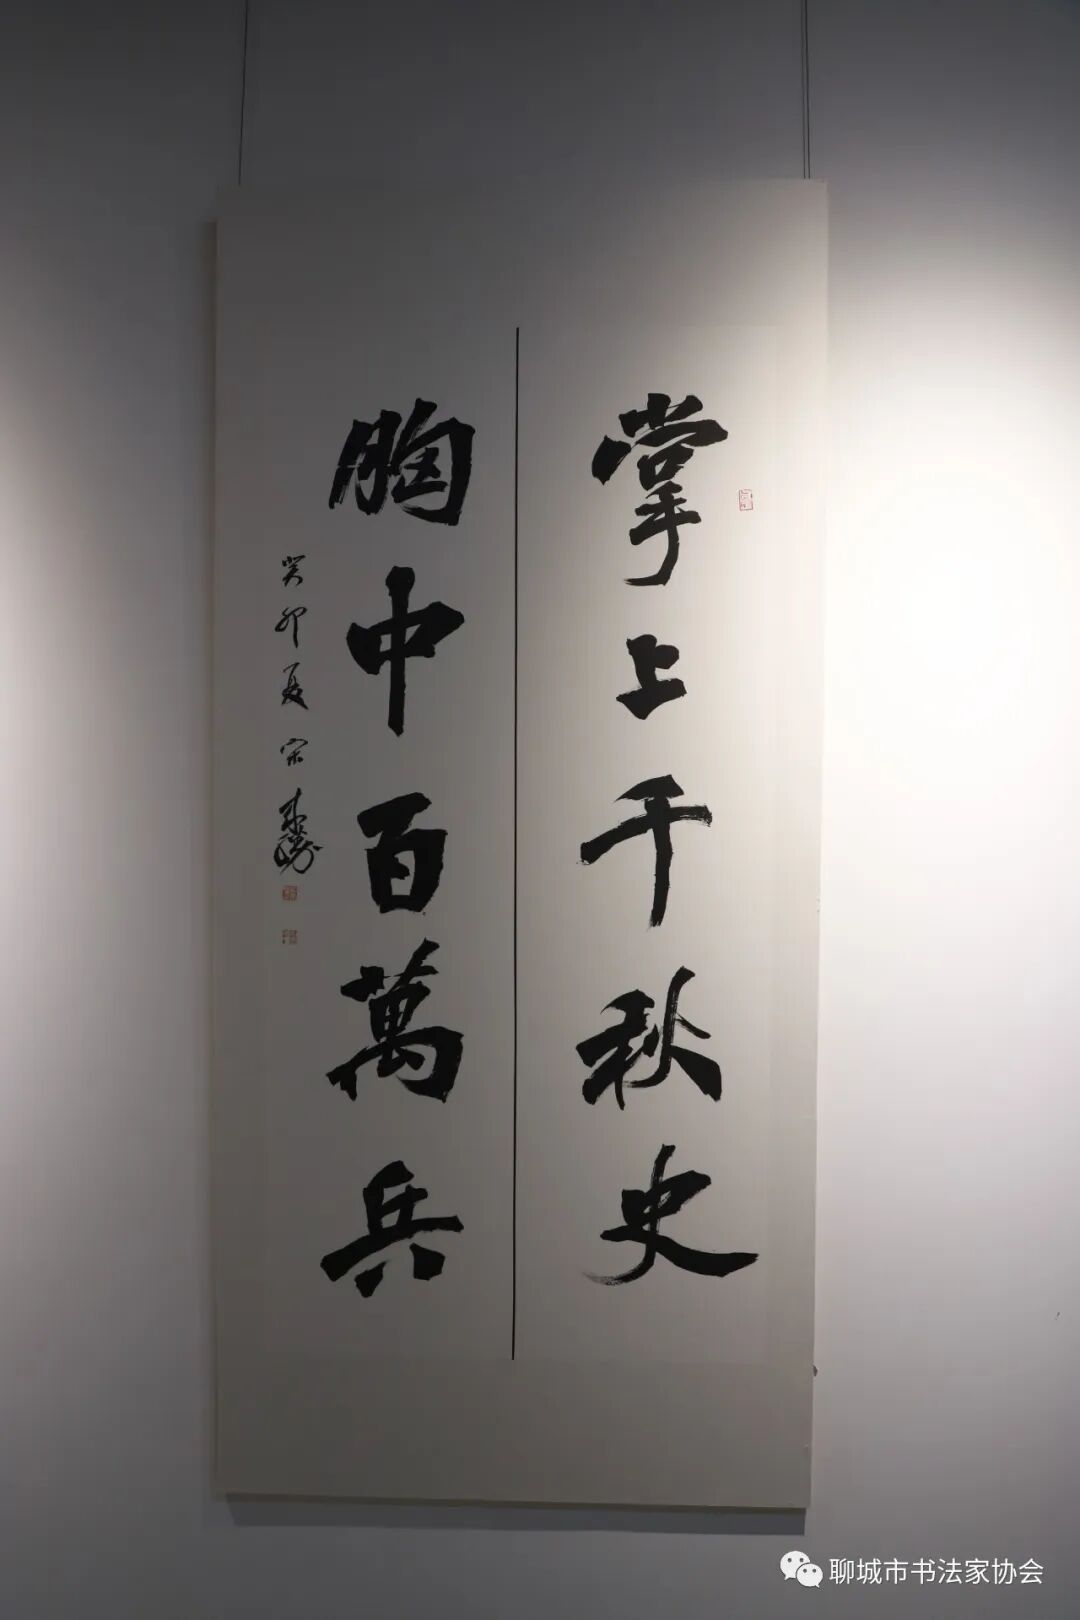 掌上千秋史
胸中百萬兵
癸卯夏宋
聊城市书法家协会